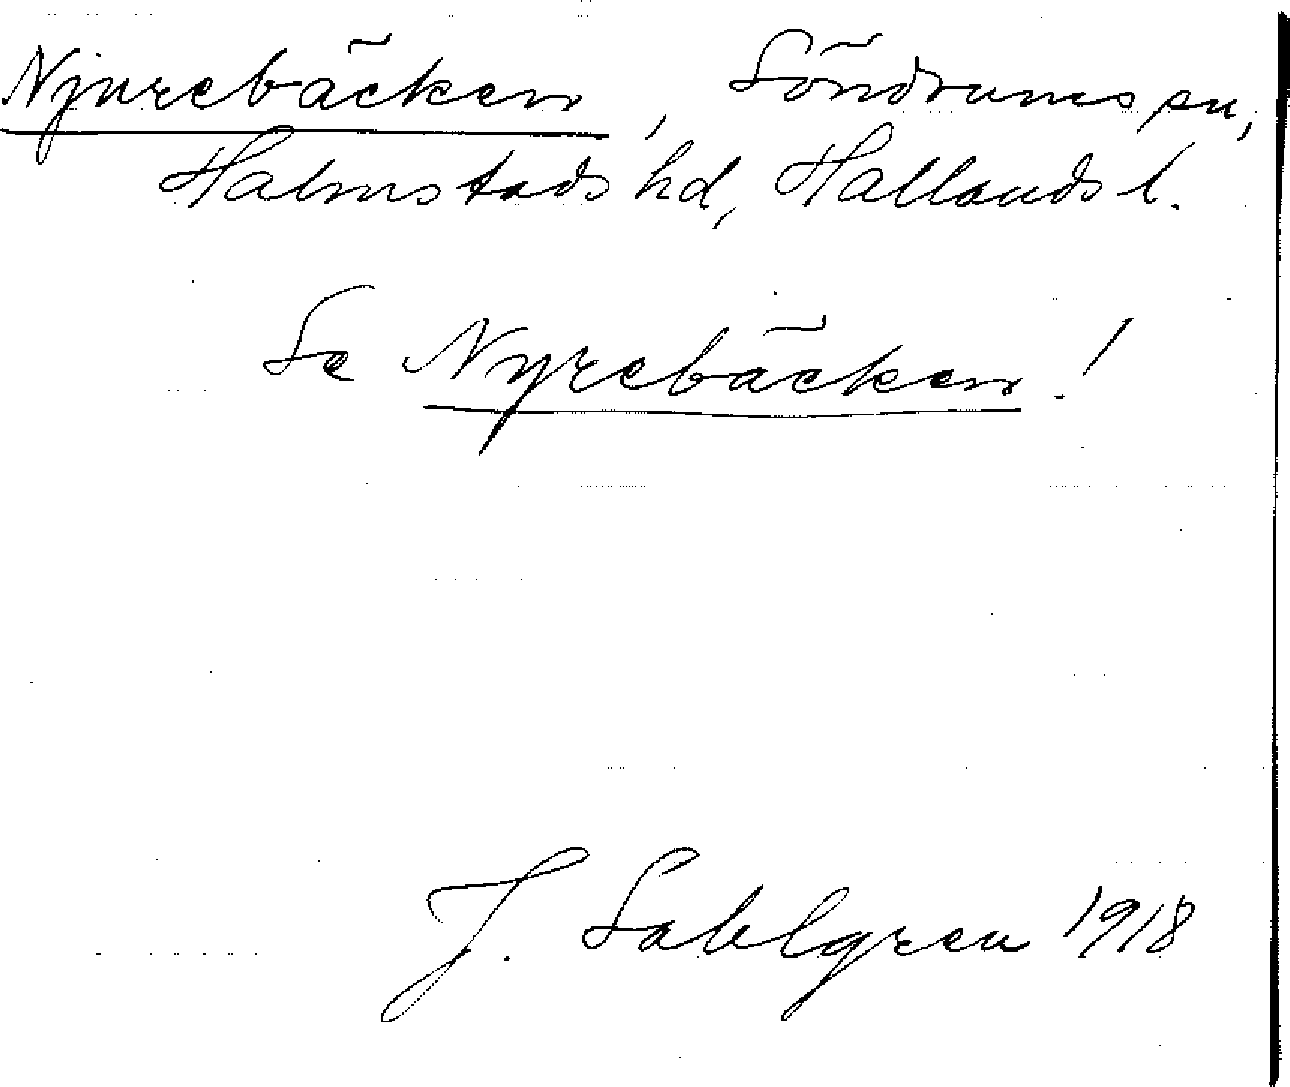 Njurebäcken, Söndrums sn,
Halmstads hd, Hallands l.
Se Nyrebäcken!
J. Sahlgren 1918